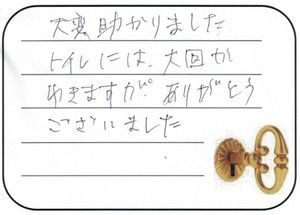 大変助かりました
トイレには、大回か
ゆきますが、ありがとう
ございました